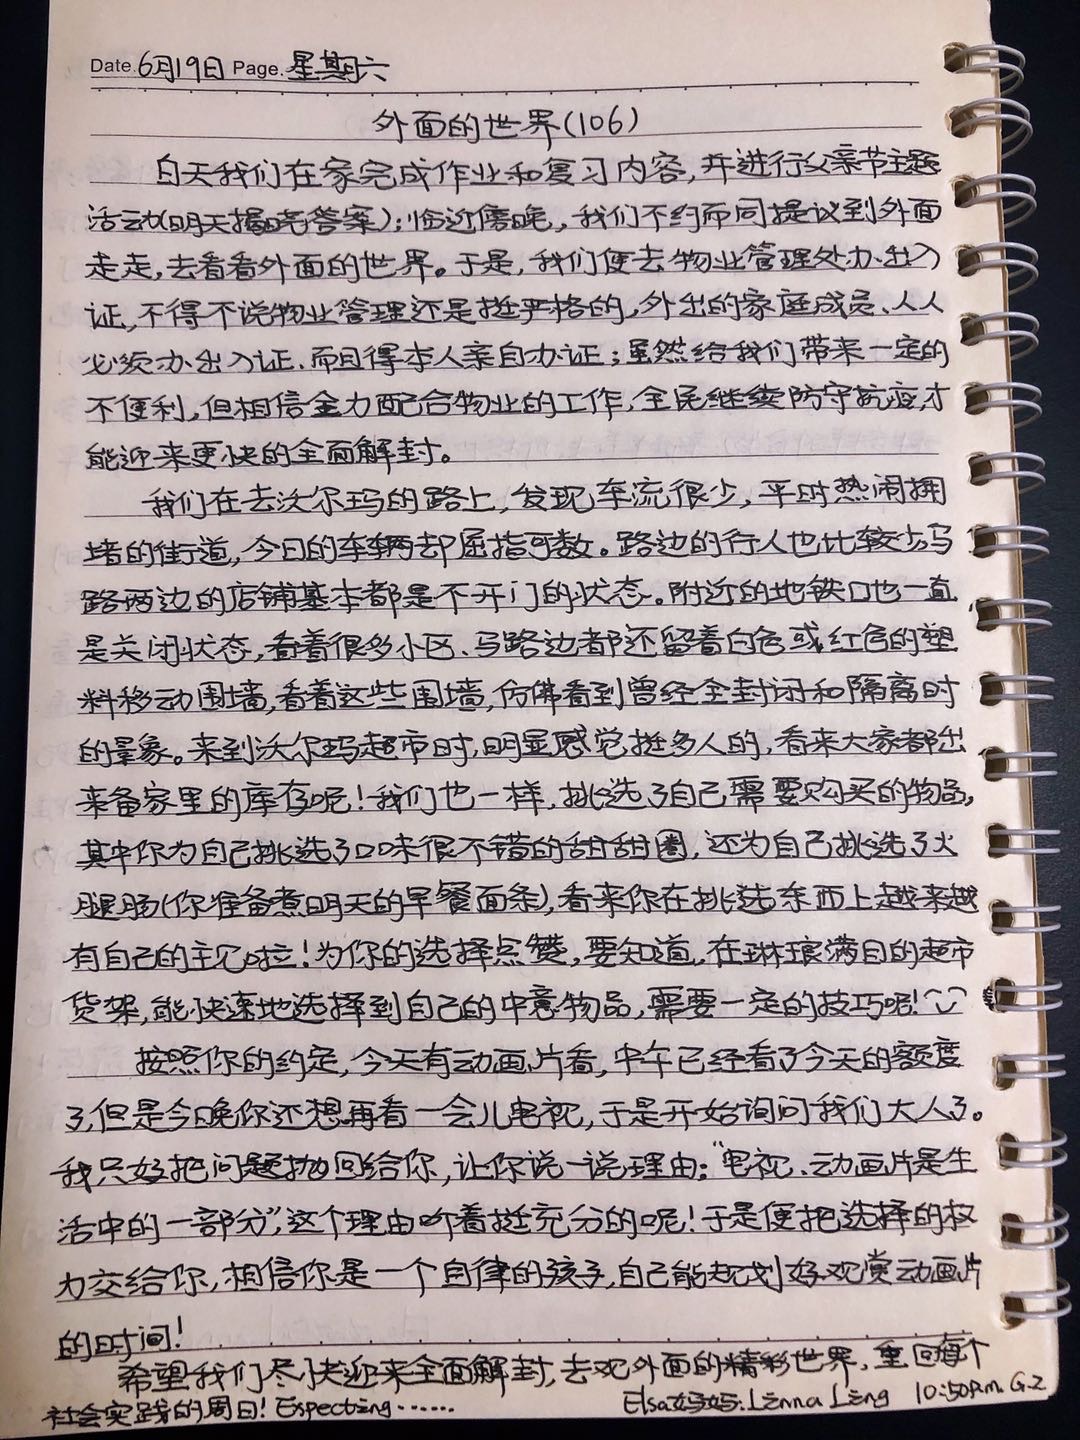 Date. 6月19日 Page. 星期六
外面的世界(106)
白天我们在家完成作业和复习内容,并进行父亲节主题
活动(明天揭晓答案);临近傍晚,我们不约而同提议到外面
走走,去看看外面的世界。于是,我们便去物业管理处办出入
证,不得不说物业管理还是挺严格的,外出的家庭成员、人人
必须办出入证、而且得本人亲自办证;虽然给我们带来一定的
不便利,但相信全力配合物业的工作,全民继续防守抗疫,才
能迎来更快的全面解封。
我们在去沃尔玛的路上,发现车流很少,平时热闹拥
堵的街道,今日的车辆却屈指可数。路边的行人也比较少,马
路两边的店铺基本都是不开门的状态。附近的地铁口也一直
是关闭状态,看着很多小区、马路边都还留着白色或红色的塑
料移动围墙,看着这些围墙,仿佛看到曾经全封闭和隔离时
的景象。来到沃尔玛超市时,明显感觉挺多人的,看来大家都出
来备家里的库存呢!我们也一样,挑选了自己需要购买的物品,
其中你为自己挑选了口味很不错的甜甜圈,还为自己挑选了火
腿肠(你准备煮明天的早餐面条),看来你在挑选东西上越来越
有自己的主见啦!为你的选择点赞,要知道,在琳琅满目的超市
货架,能快速地选择到自己的中意物品,需要一定的技巧呢!
按照你的约定,今天有动画片看,中午已经看了今天的额度
了,但是今晚你还想再看一会儿电视,于是开始询问我们大人了。
我只好把问题抛回给你,让你说一说理由:"电视、动画片是生
活中的一部分",这个理由听着挺充分的呢!于是便把选择的权
力交给你,相信你是一个自律的孩子,自己能规划好观赏动画片
的时间!
希望我们尽快迎来全面解封,去观外面的精彩世界,重回每个
社会实践的周日!Expecting…… Elsa妈妈:Linna Ling 10:50P.m. G.Z